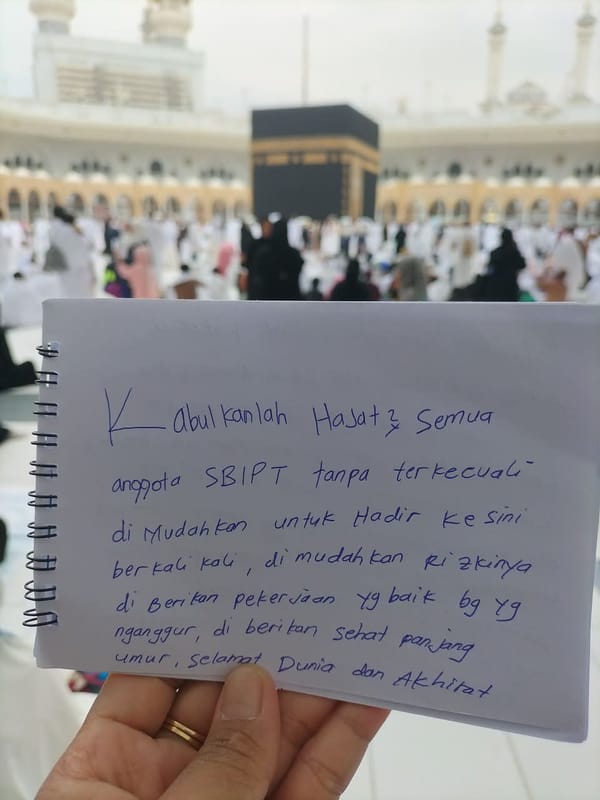 Kabulkanlah Hajat2 semua
anggota SBIPT tanpa terkecuali
di Mudahkan untuk Hadir ke sini
berkali kali, di mudahkan Rizkinya
di Berikan pekerjaan yg baik bg yg
nganggur, di berikan sehat panjang
umur, selamat Dunia dan Akhirat